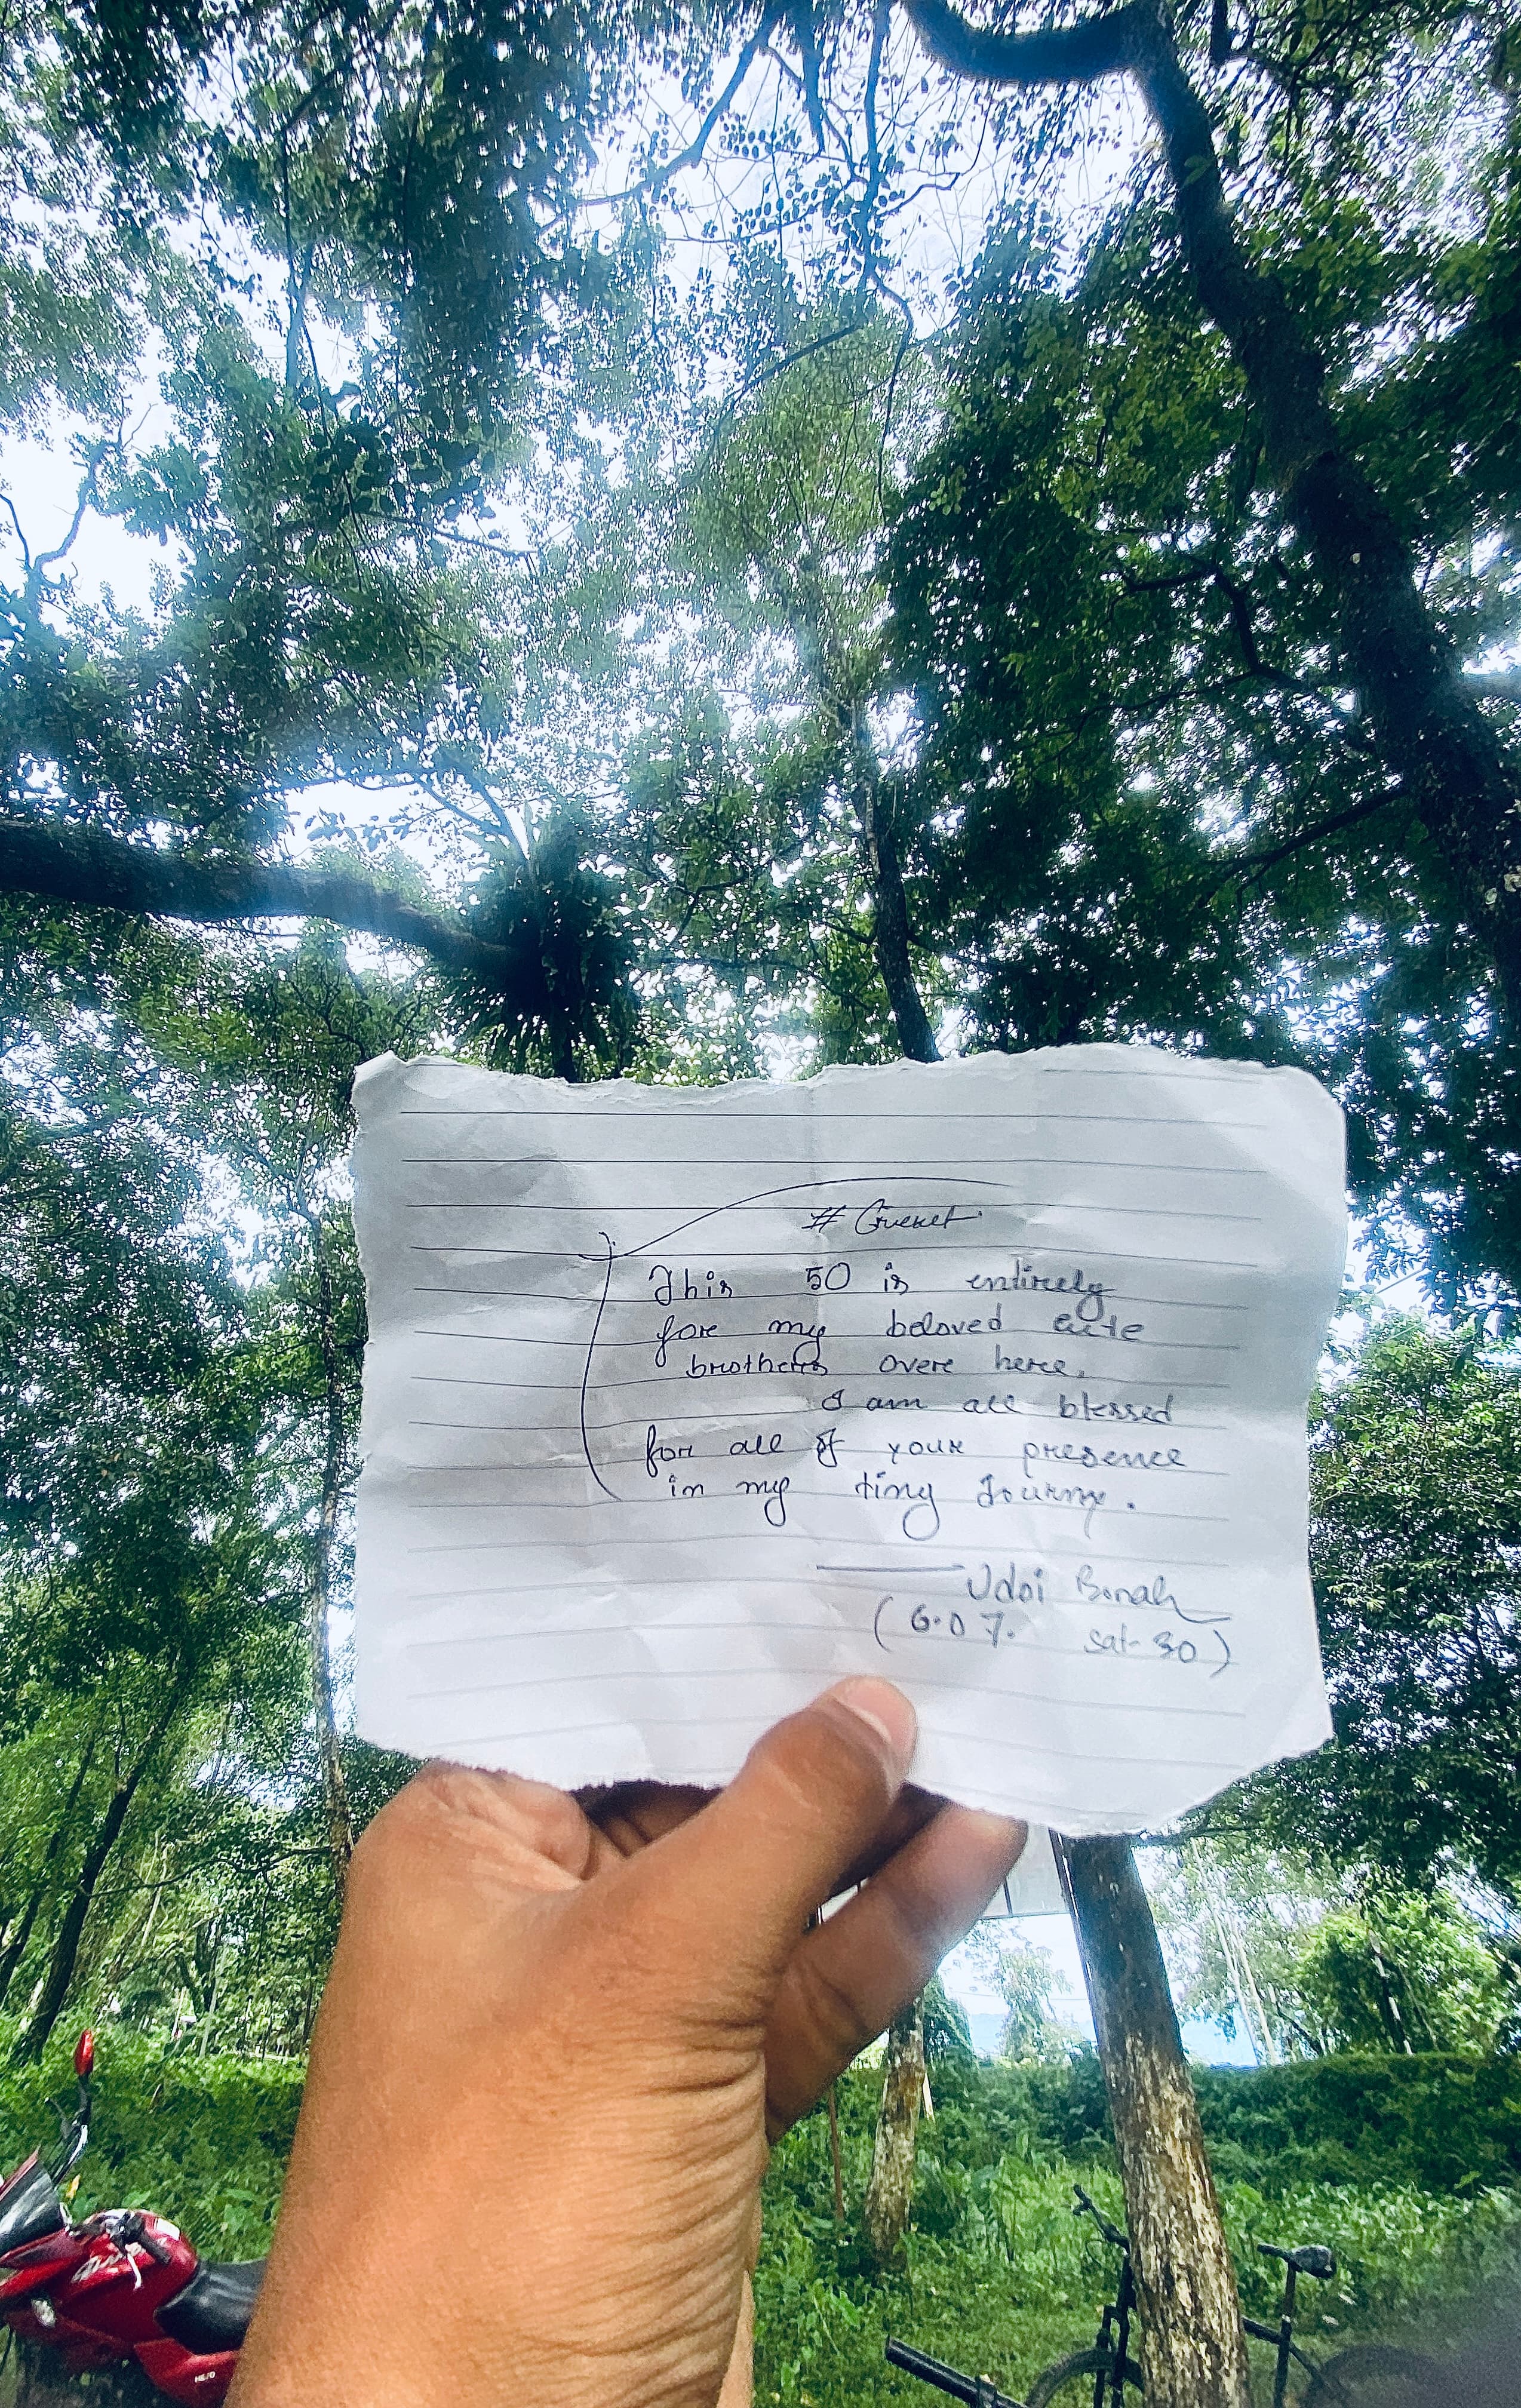 # Cricket
This 50 is entirely
for my beloved cute
brothers over here,
I am all blessed
for all of your presence
in my tiny Journy.
Udoi Borah
(6.07. sat-30)
HERO